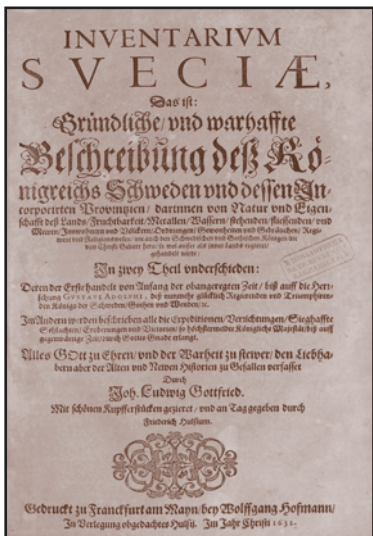 INVENTARIVM
SVECIÆ,
Das ist:
Gründliche/ vnd warhaffte
Beschreibung deß Kö-
nigreichs Schweden vnd dessen In-
corporirten Provintzien/ darinnen von Natur vnd Eigen-
schafft deß Lands/ Fruchtbarkeit/ Metallen/ Wassern/ stehenden/ fliessenden/ vnd
Meeren/ Innwohnern vnd Völckern/ Ordnungen/ Gewonheiten vnd Gebräuchen/ Regi-
ment vnd Religionswesen/ wie auch den Schwedischen vnd Gothischen Königen
von Christi Geburt her
gehandelt wirdt/
In zwey Theil vnderschieden:
Deren der Erste handelt von Anfang der obangeregten Zeit/ biß auff die Herr-
schung GVSTAVI ADOLPHI, deß nunmehr glücklich Regierenden vnd Triumphiren-
den Königs der Schweden/ Gothen vnd Wenden/ ꝛc.
Im Andern werden beschrieben alle die Expeditionen/ Verrichtungen/ Sieghaffte
Schlachten/ Eroberungen vnd Victorien/ so höchstermelte Königliche Majestät/ biß auff
gegenwärtige Zeit/ durch Gottes Gnade erlangt.
Alles GOtt zu Ehren/ vnd der Warheit zu stewer/ den Liebha-
bern aber der Alten vnd Newen Historien zu Gefallen verfasset
Durch
Joh. Ludwig Gottfried.
Mit schönen Kupfferstücken gezieret/ vnd an Tag gegeben durch
Friederich Hulsium.
Gedruckt zu Franckfurt am Mayn/ bey Wolffgang Hofmann/
In Verlegung obgedachtes Hulsij. Im Jahr Christi